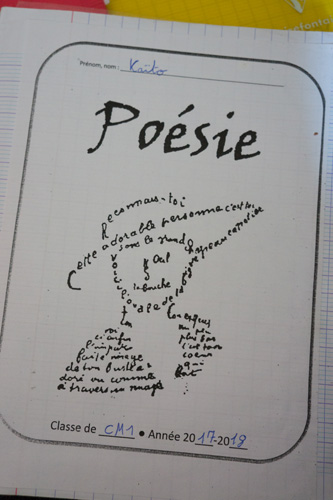 Prénom, nom : Kaïto
Poésie
Reconnais-toi
Cette adorable personne c'est toi
sous le grand chapeau canotier
Œil
la bouche
voici l'ovale de ta figure
ton
cou exquis
voi
ci enfin
l'impar
faite image
de ton buste a
doré vu comme
à travers un nuage
un peu
plus bas
c'est ton
cœur
qui
bat
Classe de CM1 • Année 2017-2018